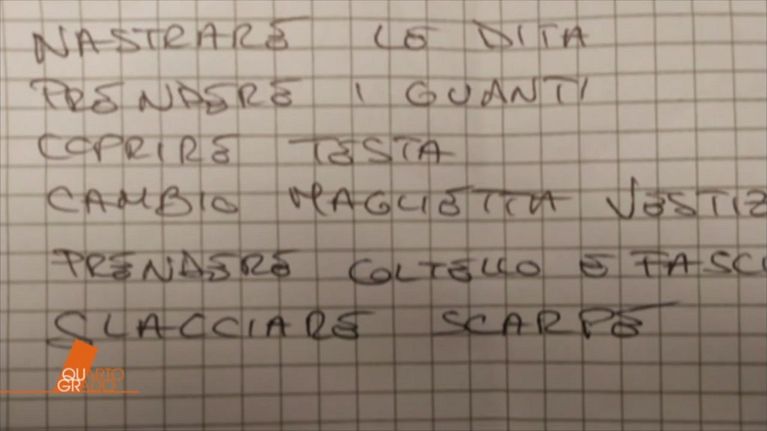 NASTRARE LE DITA
PRENDERE I GUANTI
COPRIRE TESTA
CAMBIO MAGLIETTA VESTIZ
PRENDERE COLTELLO E FASC
SLACCIARE SCARPE
QUARTO
GRADO